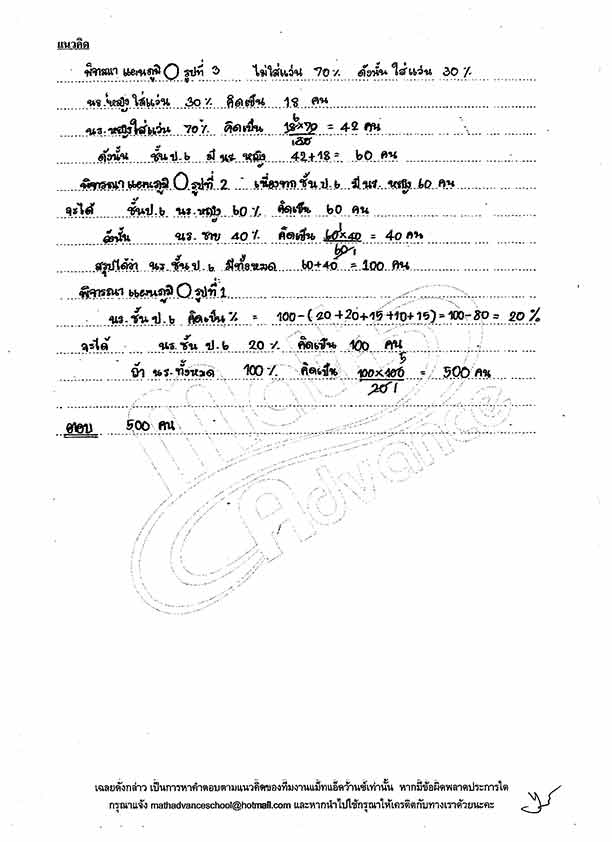 แนวคิด
พิจารณา แผนภูมิ ◯ รูปที่ 3 ไม่ใส่แว่น 70% ดังนั้น ใส่แว่น 30%
นร.หญิง ใส่แว่น 30% คิดเป็น 18 คน
นร.หญิง ใส่แว่น 70% คิดเป็น 18×70 = 42 คน
ดังนั้น ชั้น ป.6 มี นร. หญิง 42+18 = 60 คน
พิจารณา แผนภูมิ ◯ รูปที่ 2 เนื่องจาก ชั้น ป.6 มี นร. หญิง 60 คน
จะได้ ชั้น ป.6 นร.หญิง 60% คิดเป็น 60 คน
ดังนั้น นร. ชาย 40% คิดเป็น 60×40/60 = 40 คน
สรุปได้ว่า นร. ชั้น ป.6 มีทั้งหมด 60+40 = 100 คน
พิจารณา แผนภูมิ ◯ รูปที่ 1
นร. ชั้น ป.6 คิดเป็น % = 100-(20+20+15+10+15) = 100-80 = 20%
จะได้ นร. ชั้น ป.6 20% คิดเป็น 100 คน
ถ้า นร. ทั้งหมด 100% คิดเป็น 100×100/20 = 500 คน
ตอบ 500 คน
Math
Advance
เฉลยดังกล่าว เป็นการหาคำตอบตามแนวคิดของทีมงานแม็ทแอ็ดว้านซ์เท่านั้น หากมีข้อผิดพลาดประการใด
กรุณาแจ้ง mathadvanceschool@hotmail.com และหากนำไปใช้กรุณาให้เครดิตกับทางเราด้วยนะคะ